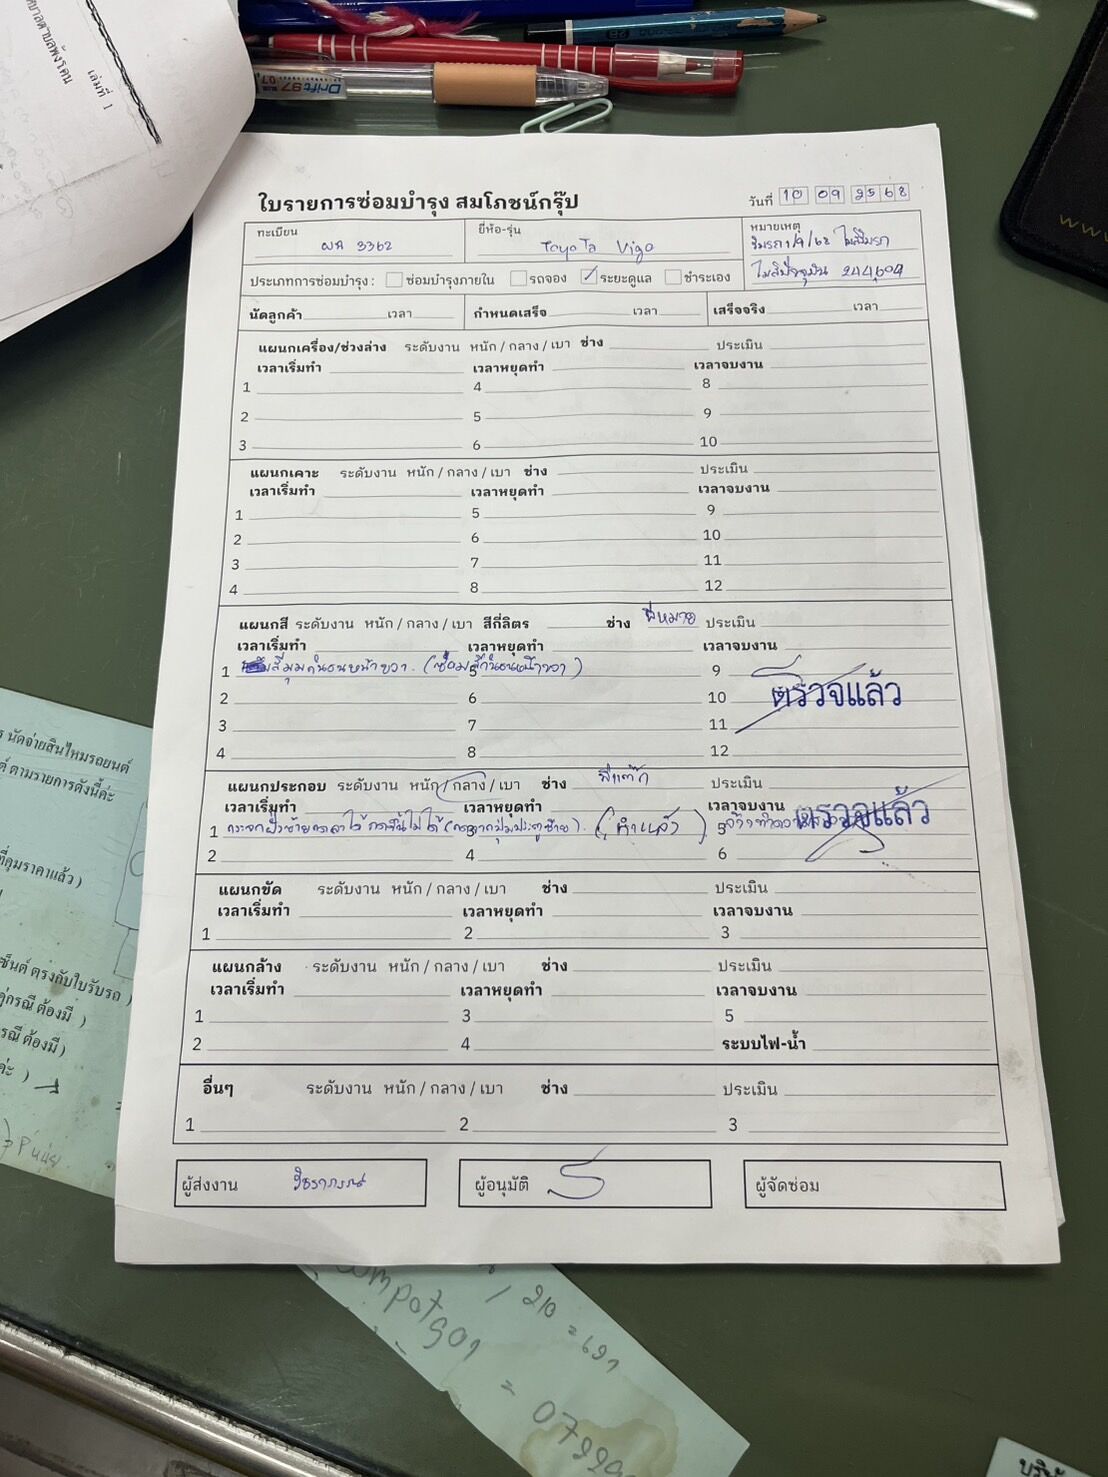 เล่มที่ 1
Drift97 0.7
2B
ใบรายการซ่อมบำรุง สมโภชน์กรุ๊ป
วันที่ 10 09 2568
ทะเบียน ผก 3362
ยี่ห้อ-รุ่น Toyota Vigo
หมายเหตุ
ไมล์ปัจจุบัน 244,609
ประเภทการซ่อมบำรุง : ซ่อมบำรุงภายใน รถจอง ระยะดูแล ชำระเอง
นัดลูกค้า เวลา กำหนดเสร็จ เวลา เสร็จจริง เวลา
แผนกเครื่อง/ช่วงล่าง ระดับงาน หนัก / กลาง / เบา ช่าง ประเมิน
เวลาเริ่มทำ เวลาหยุดทำ เวลาจบงาน
1 4 8
2 5 9
3 6 10
แผนกเคาะ ระดับงาน หนัก / กลาง / เบา ช่าง ประเมิน
เวลาเริ่มทำ เวลาหยุดทำ เวลาจบงาน
1 5 9
2 6 10
3 7 11
4 8 12
แผนกสี ระดับงาน หนัก / กลาง / เบา สีกี่ลิตร ช่าง พี่หมาย ประเมิน
เวลาเริ่มทำ เวลาหยุดทำ เวลาจบงาน
1 สีมุมกันชนหน้าขวา. (ซ่อมสีกันชนหน้าขวา) 5 9
2 6 10 ตรวจแล้ว
3 7 11
4 8 12
แผนกประกอบ ระดับงาน หนัก / กลาง / เบา ช่าง ประเมิน
เวลาเริ่มทำ เวลาหยุดทำ เวลาจบงาน ตรวจแล้ว
1 กระจกฝั่งซ้ายกดลงได้ กดขึ้นไม่ได้ (ทำแล้ว) 3 5
2 4 6
แผนกขัด ระดับงาน หนัก / กลาง / เบา ช่าง ประเมิน
เวลาเริ่มทำ เวลาหยุดทำ เวลาจบงาน
1 2 3
แผนกล้าง ระดับงาน หนัก / กลาง / เบา ช่าง ประเมิน
เวลาเริ่มทำ เวลาหยุดทำ เวลาจบงาน
1 3 5
2 4 ระบบไฟ-น้ำ
อื่นๆ ระดับงาน หนัก / กลาง / เบา ช่าง ประเมิน
1 2 3
ผู้ส่งงาน
ผู้อนุมัติ
ผู้จัดซ่อม
นัดจ่ายสินไหมรถยนต์
ตามรายการดังนี้ค่ะ
ที่คุมราคาแล้ว )
ตรงกับใบรับรถ )
คู่กรณี ต้องมี )
รณี ต้องมี )
ค่ะ )